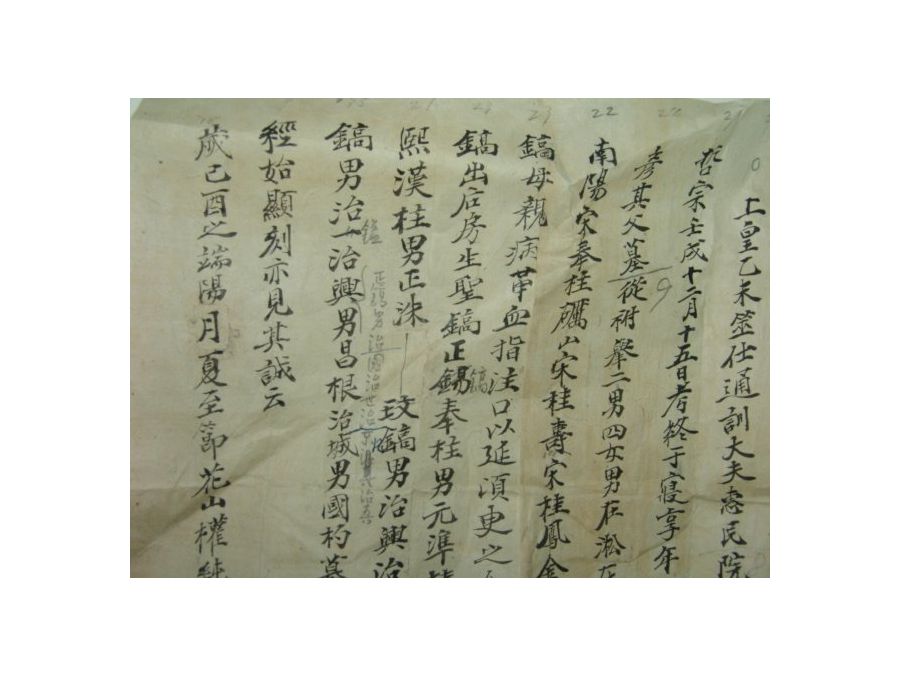 上皇乙未筮仕通訓大夫惠民院
哲宗壬戌十二月十五日考終于寢享年
其父墓從祔擧二男四女男在淞在
南陽宋奉柱礪山宋柱壽宋桂鳳金
鎬母親病革血指注口以延須更之
鎬出后房生聖鎬正錫鎬奉柱男元準
熙漢柱男正洙 玟鎬男治興治
正錫男治國治世治
鎬男治一治興男昌根治城男國杓墓
經始顯刻亦見其誠云
歲己酉之端陽月夏至節花山權純
22
23